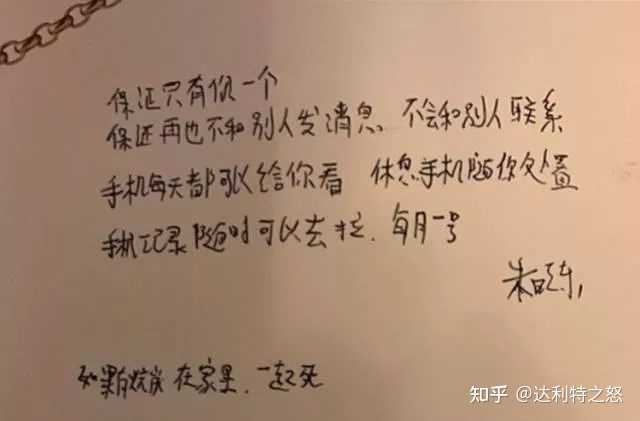 保证只有你一个
保证再也不和别人发消息 不会和别人联系
手机每天都可以给你看 休息手机随你处置
手机记录随时可以去拉. 每月一号
朱晓东
如果有烧炭 在家里. 一起死
知乎 @达利特之怒